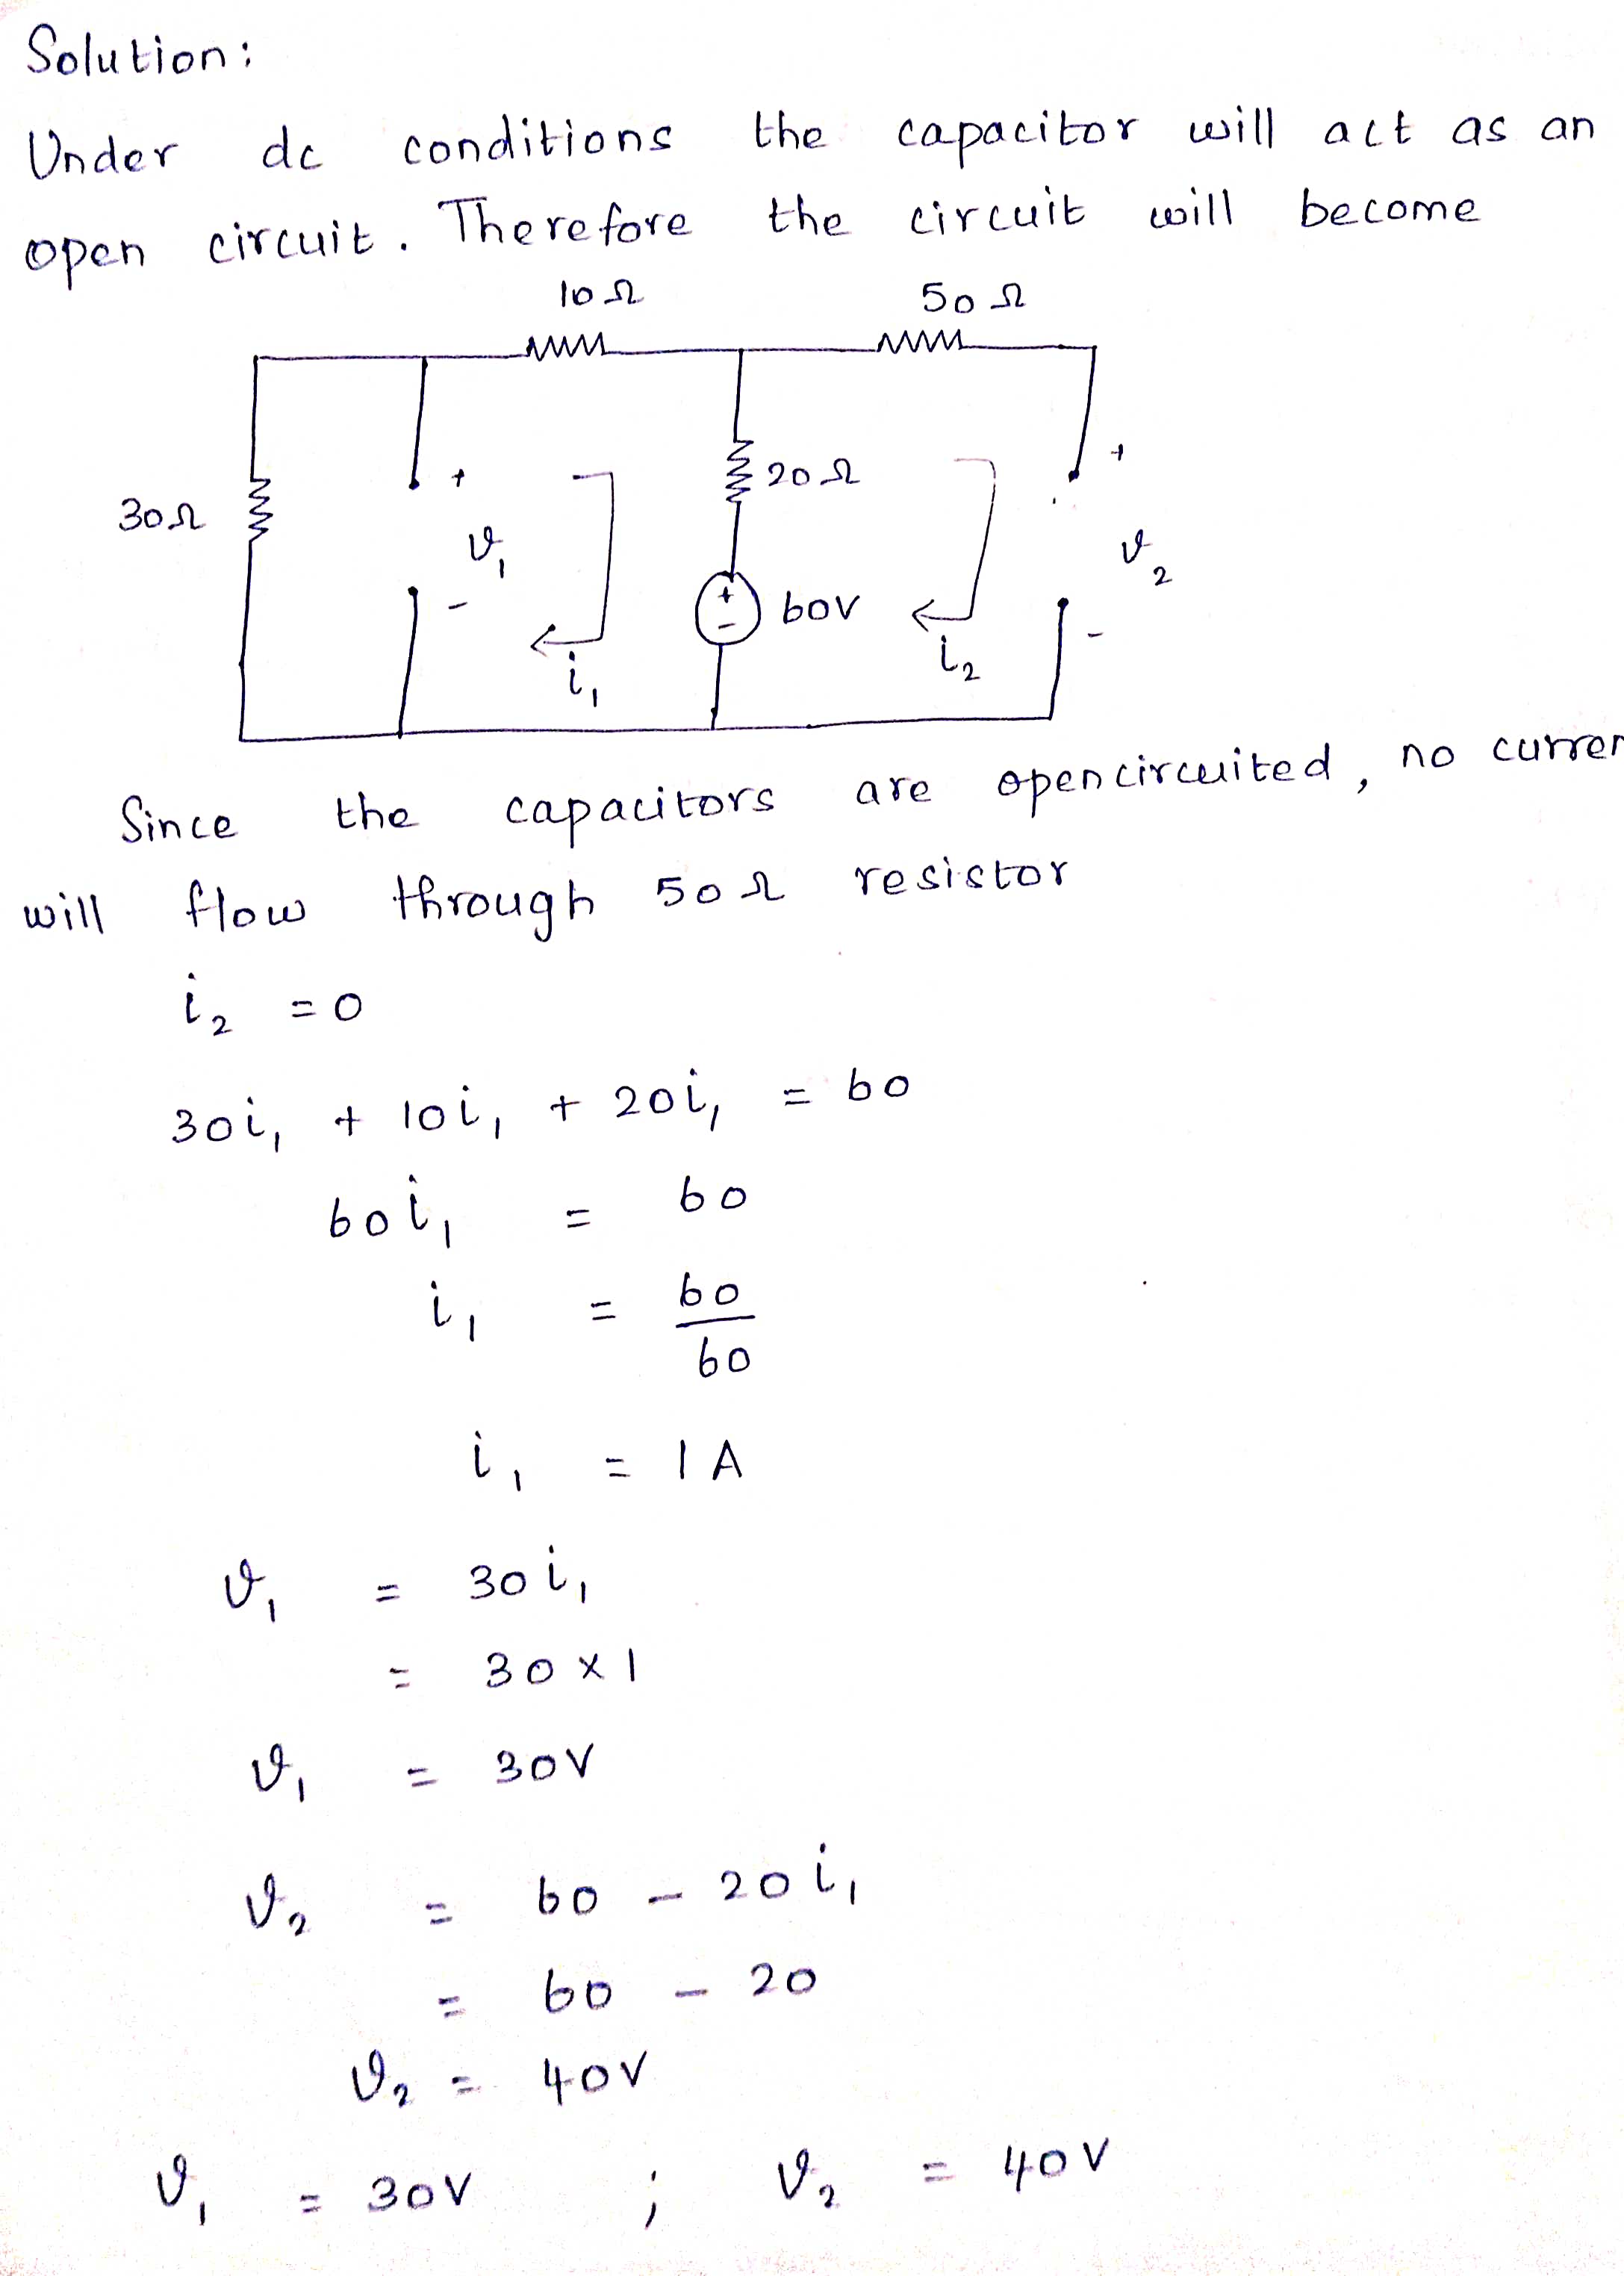 Solution:
Under dc conditions the capacitor will act as an
open circuit. Therefore the circuit will become
10Ω 50Ω
30Ω + v₁ - i₁ 20Ω + - 60V i₂ + v₂ -
Since the capacitors are opencircuited, no curren
will flow through 50Ω resistor
i₂ = 0
30i₁ + 10i₁ + 20i₁ = 60
60i₁ = 60
i₁ = 60
60
i₁ = 1A
v₁ = 30i₁
= 30 x 1
v₁ = 30V
v₂ = 60 - 20i₁
= 60 - 20
v₂ = 40V
v₁ = 30V ; v₂ = 40V